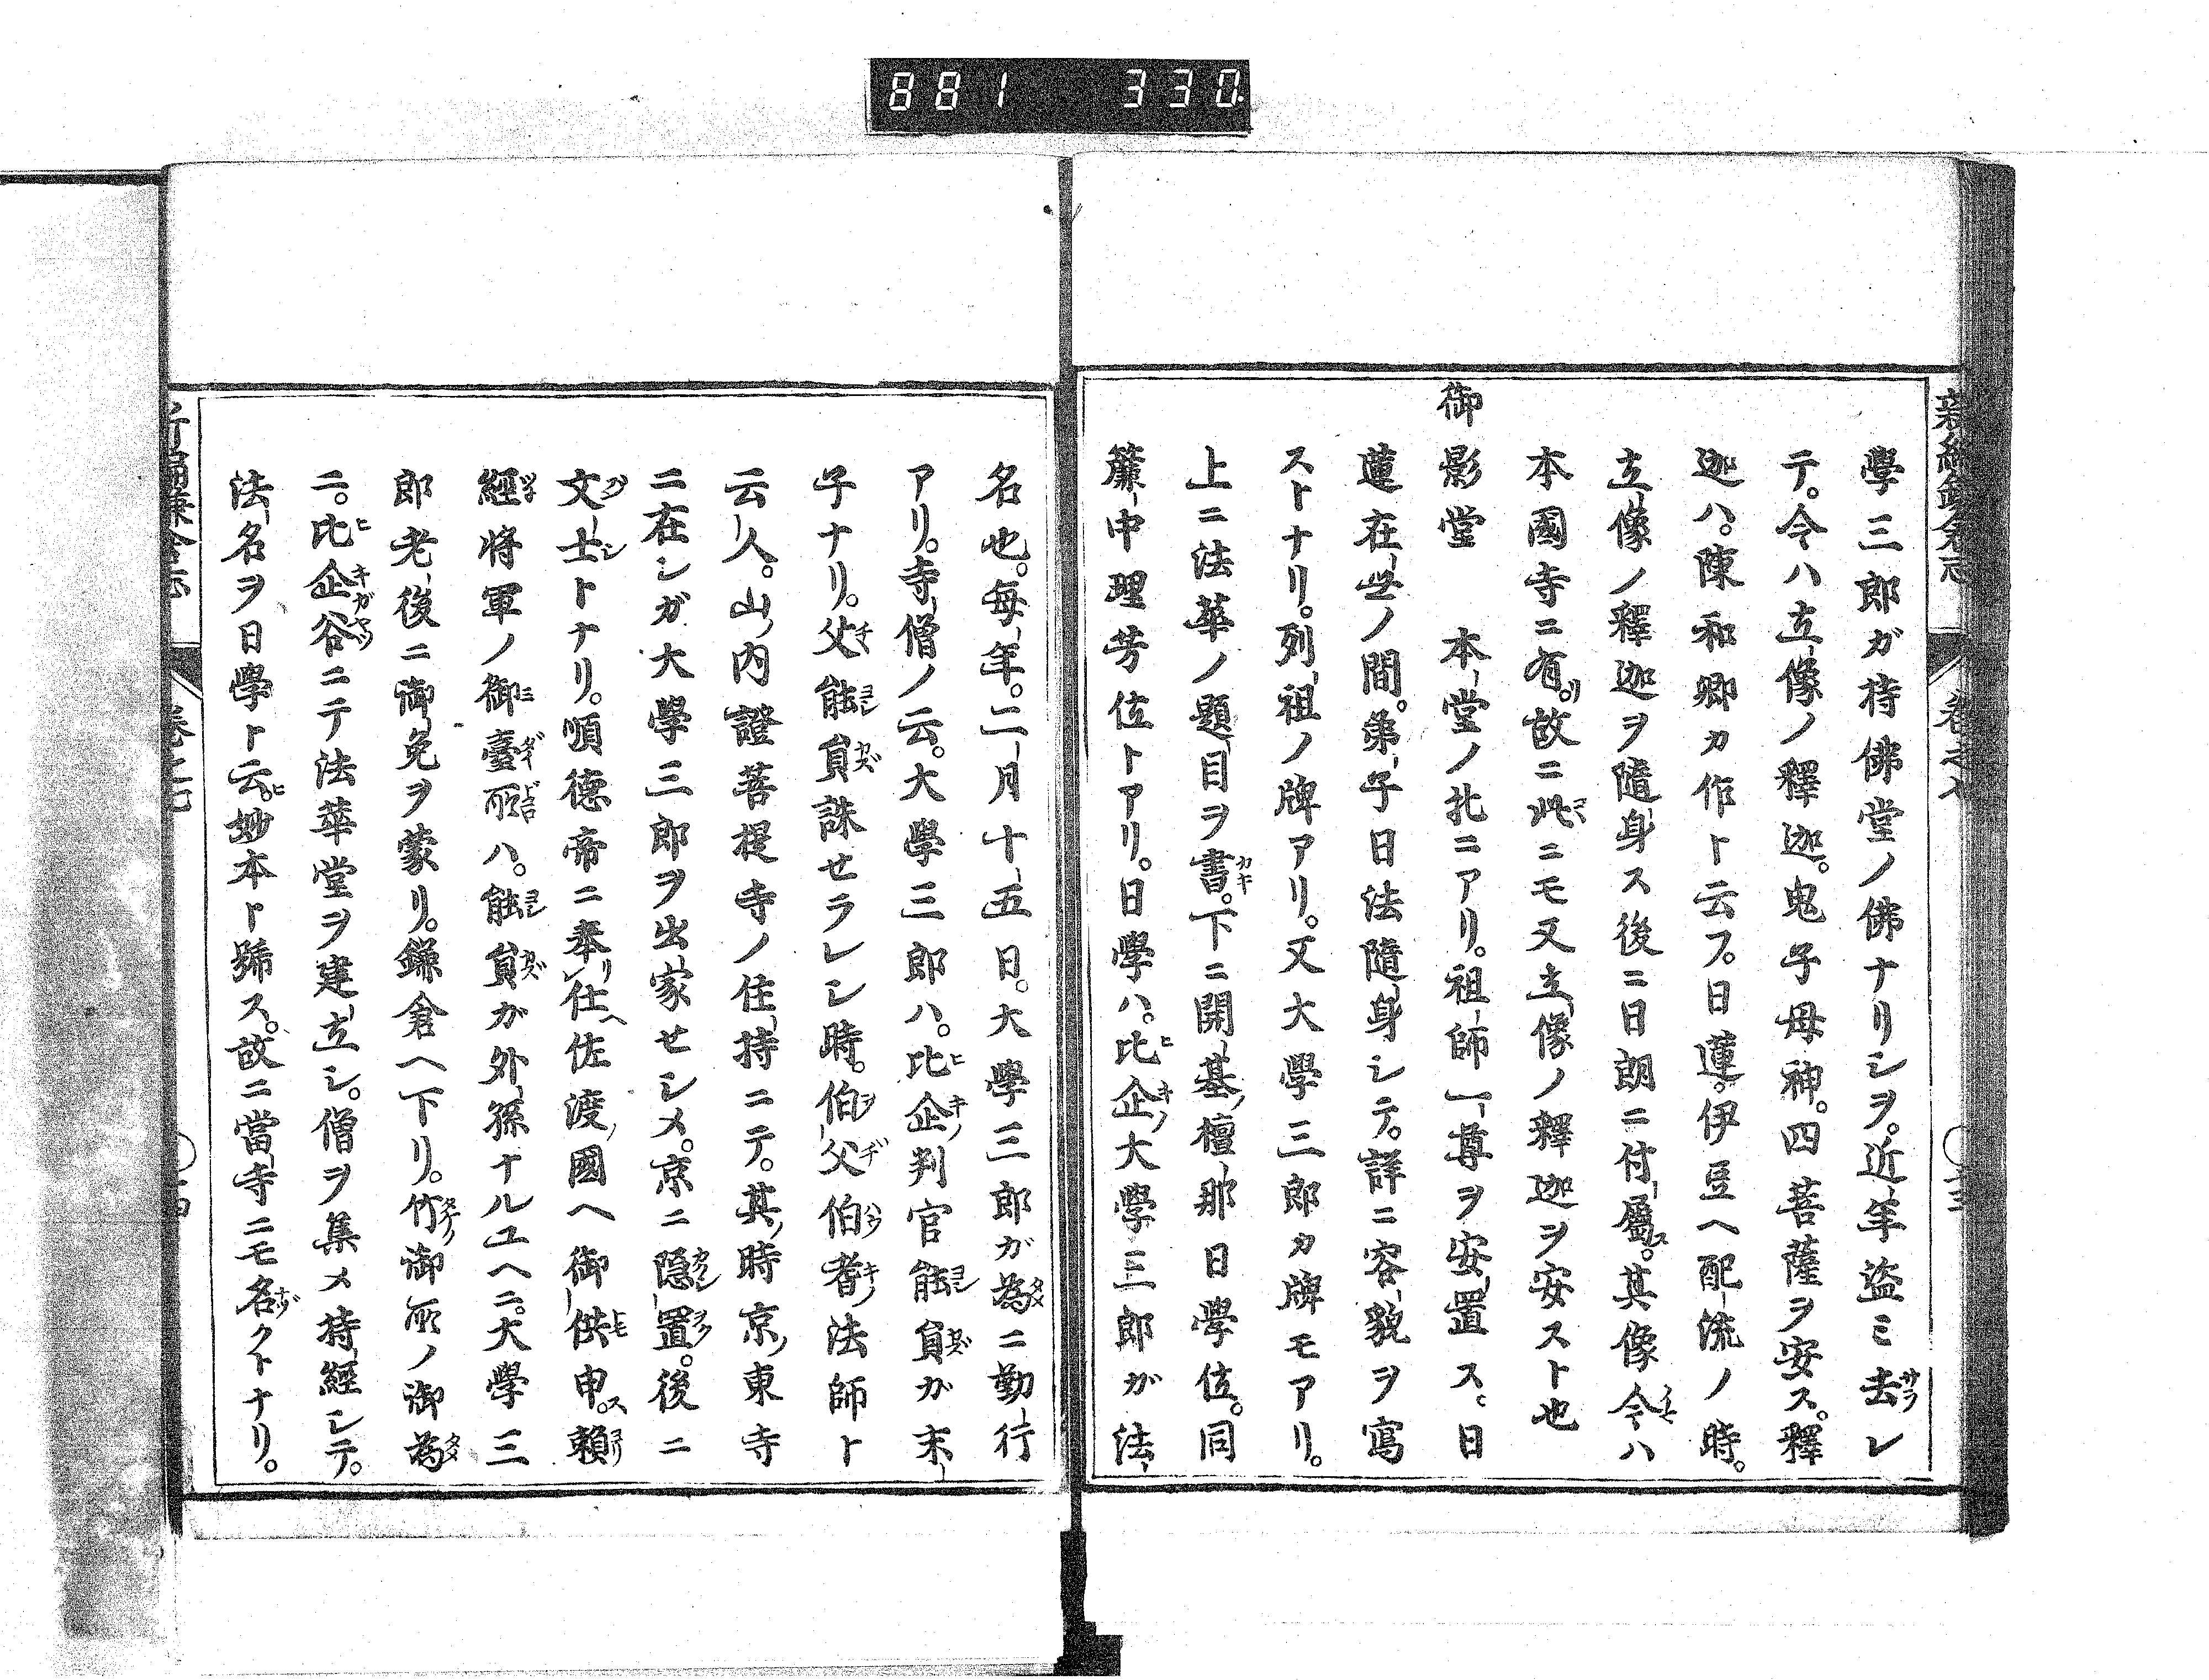 881 330
學三郎ガ持佛堂ノ佛ナリシヲ。近年盗ミ去レ
テ。今ハ立像ノ釋迦。鬼子母神。四菩薩ヲ安ス。釋
迦ハ。陳和卿カ作ト云フ。日蓮。伊豆ヘ配流ノ時。
立像ノ釋迦ヲ隨身ス後ニ日朗ニ付屬ス。其像今ハ
本國寺ニ有リ。故ニ此ニモ又立像ノ釋迦ヲ安スト也
御影堂 本堂ノ北ニアリ。祖師一尊ヲ安置ス。日
蓮在世ノ間。弟子日法隨身シテ。詳ニ容貌ヲ寫
ストナリ。列祖ノ牌アリ。又大學三郎カ牌モアリ。
上ニ法華ノ題目ヲ書。下ニ開基檀那日學位。同
簾中理芳位トアリ。日學ハ。比企大學三郎ガ法
名也。毎年。二月十五日。大學三郎ガ為ニ勤行
アリ。寺僧ノ云。大學三郎ハ。比企判官能員ガ末
子ナリ。父能員誅セラレシ時。伯父伯耆法師ト
云人。山ノ内證菩提寺ノ住持ニテ。其時京ノ東寺
ニ在シガ大學三郎ヲ出家セシメ。京ニ隱置。後ニ
文士トナリ。順德帝ニ奉リ仕ヘ佐渡國ヘ御供申ス。賴
經將軍ノ御臺所ハ。能員ガ外孫ナルユヘニ。大學三
郎老後ニ御免ヲ蒙リ。鎌倉ヘ下リ。竹御所ノ御為
ニ。比企谷ニテ法華堂ヲ建立シ。僧ヲ集メ持經シテ。
法名ヲ日學ト云ヒ。妙本ト號ス。故ニ當寺ニモ名クトナリ。